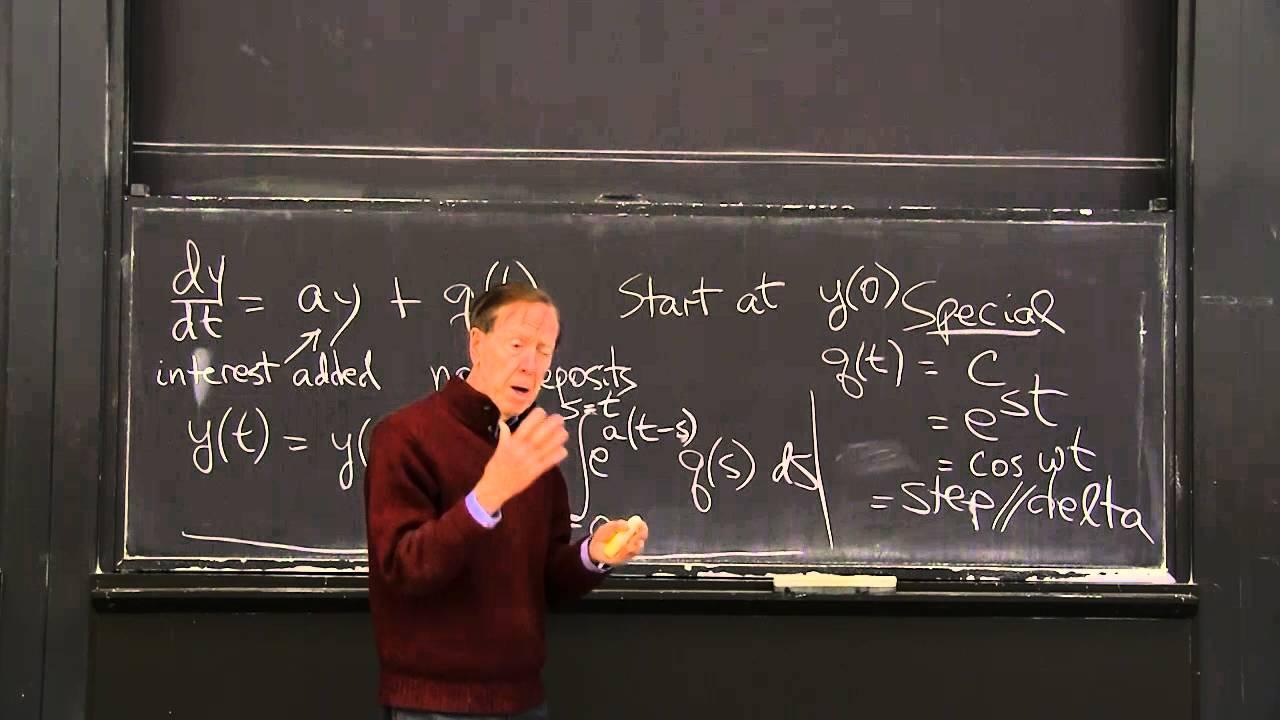 dy/dt = ay + q(t) Start at y(0)
interest added deposits
y(t) = y( ∫ e^{a(t-s)} q(s) ds
s=t
=0
Special
q(t) = C
= e^{st}
= cos ωt
= step//delta